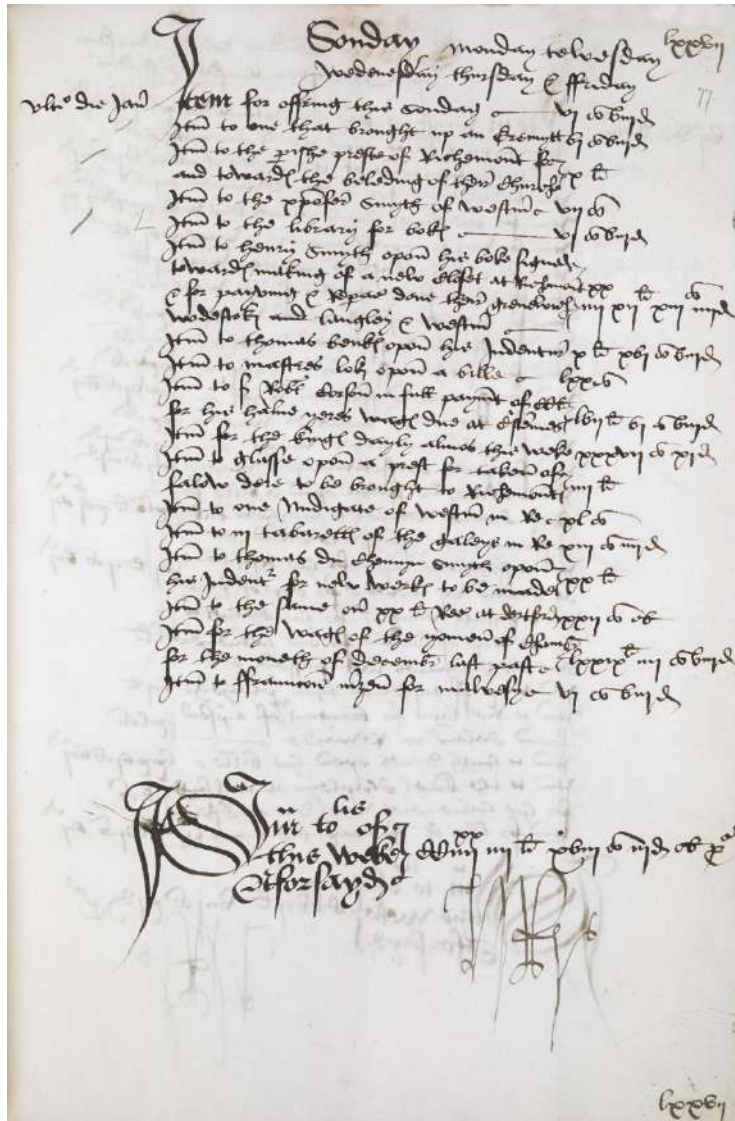 lxxvij
Sonday monday tewesday
Wedenesday thursday & ffriday
77
vltio die Janu Item for offring this Sonday vj s viij d
Itm to one that brought up an Eremytt vj s viij d
Itm to the pishe preste of Richemont for
and toward the beleding of their Churche x li
Itm to the Smyth of westm vij s
Itm to the library for bok vj s viij d
Itm to henry Smyth opon his boke signed
toward making of a new closet at Richmont xx li
& for payving & Repac done their grenewich iiij xij li xiij s iiij d
wodestok and langley & westm
Itm to thomas opon his Indentur x li xvj s viij d
Itm to mastres lok opon a bille lxx s
Itm to s Robt in full paymt of
for his halue yeres wag due at lvij li vj s viij d
Itm for the king dayly almes this weke xxxvij s xj d
Itm to glasse opon a prest for taken of
falow dere to be brought to Richemont iiij li
Itm to one Nudigate of westm in Re xl s
Itm to iij tabarett of the galeys in Re xiij s iiij d
Itm to thomas du Smyth opon
his Indent for new werk to be made xx li
Itm to the same on xx li Re at dertford xxij s ob
Itm for the wag of the yomen of Chamb
for the moneth of Decemb last past lxxix li iiij s viij d
Itm to ffraunces for malvesy vj s viij d
Sm tolis of
this weke iiij li xviij s iij d ob
Aforsayd
lxxvij